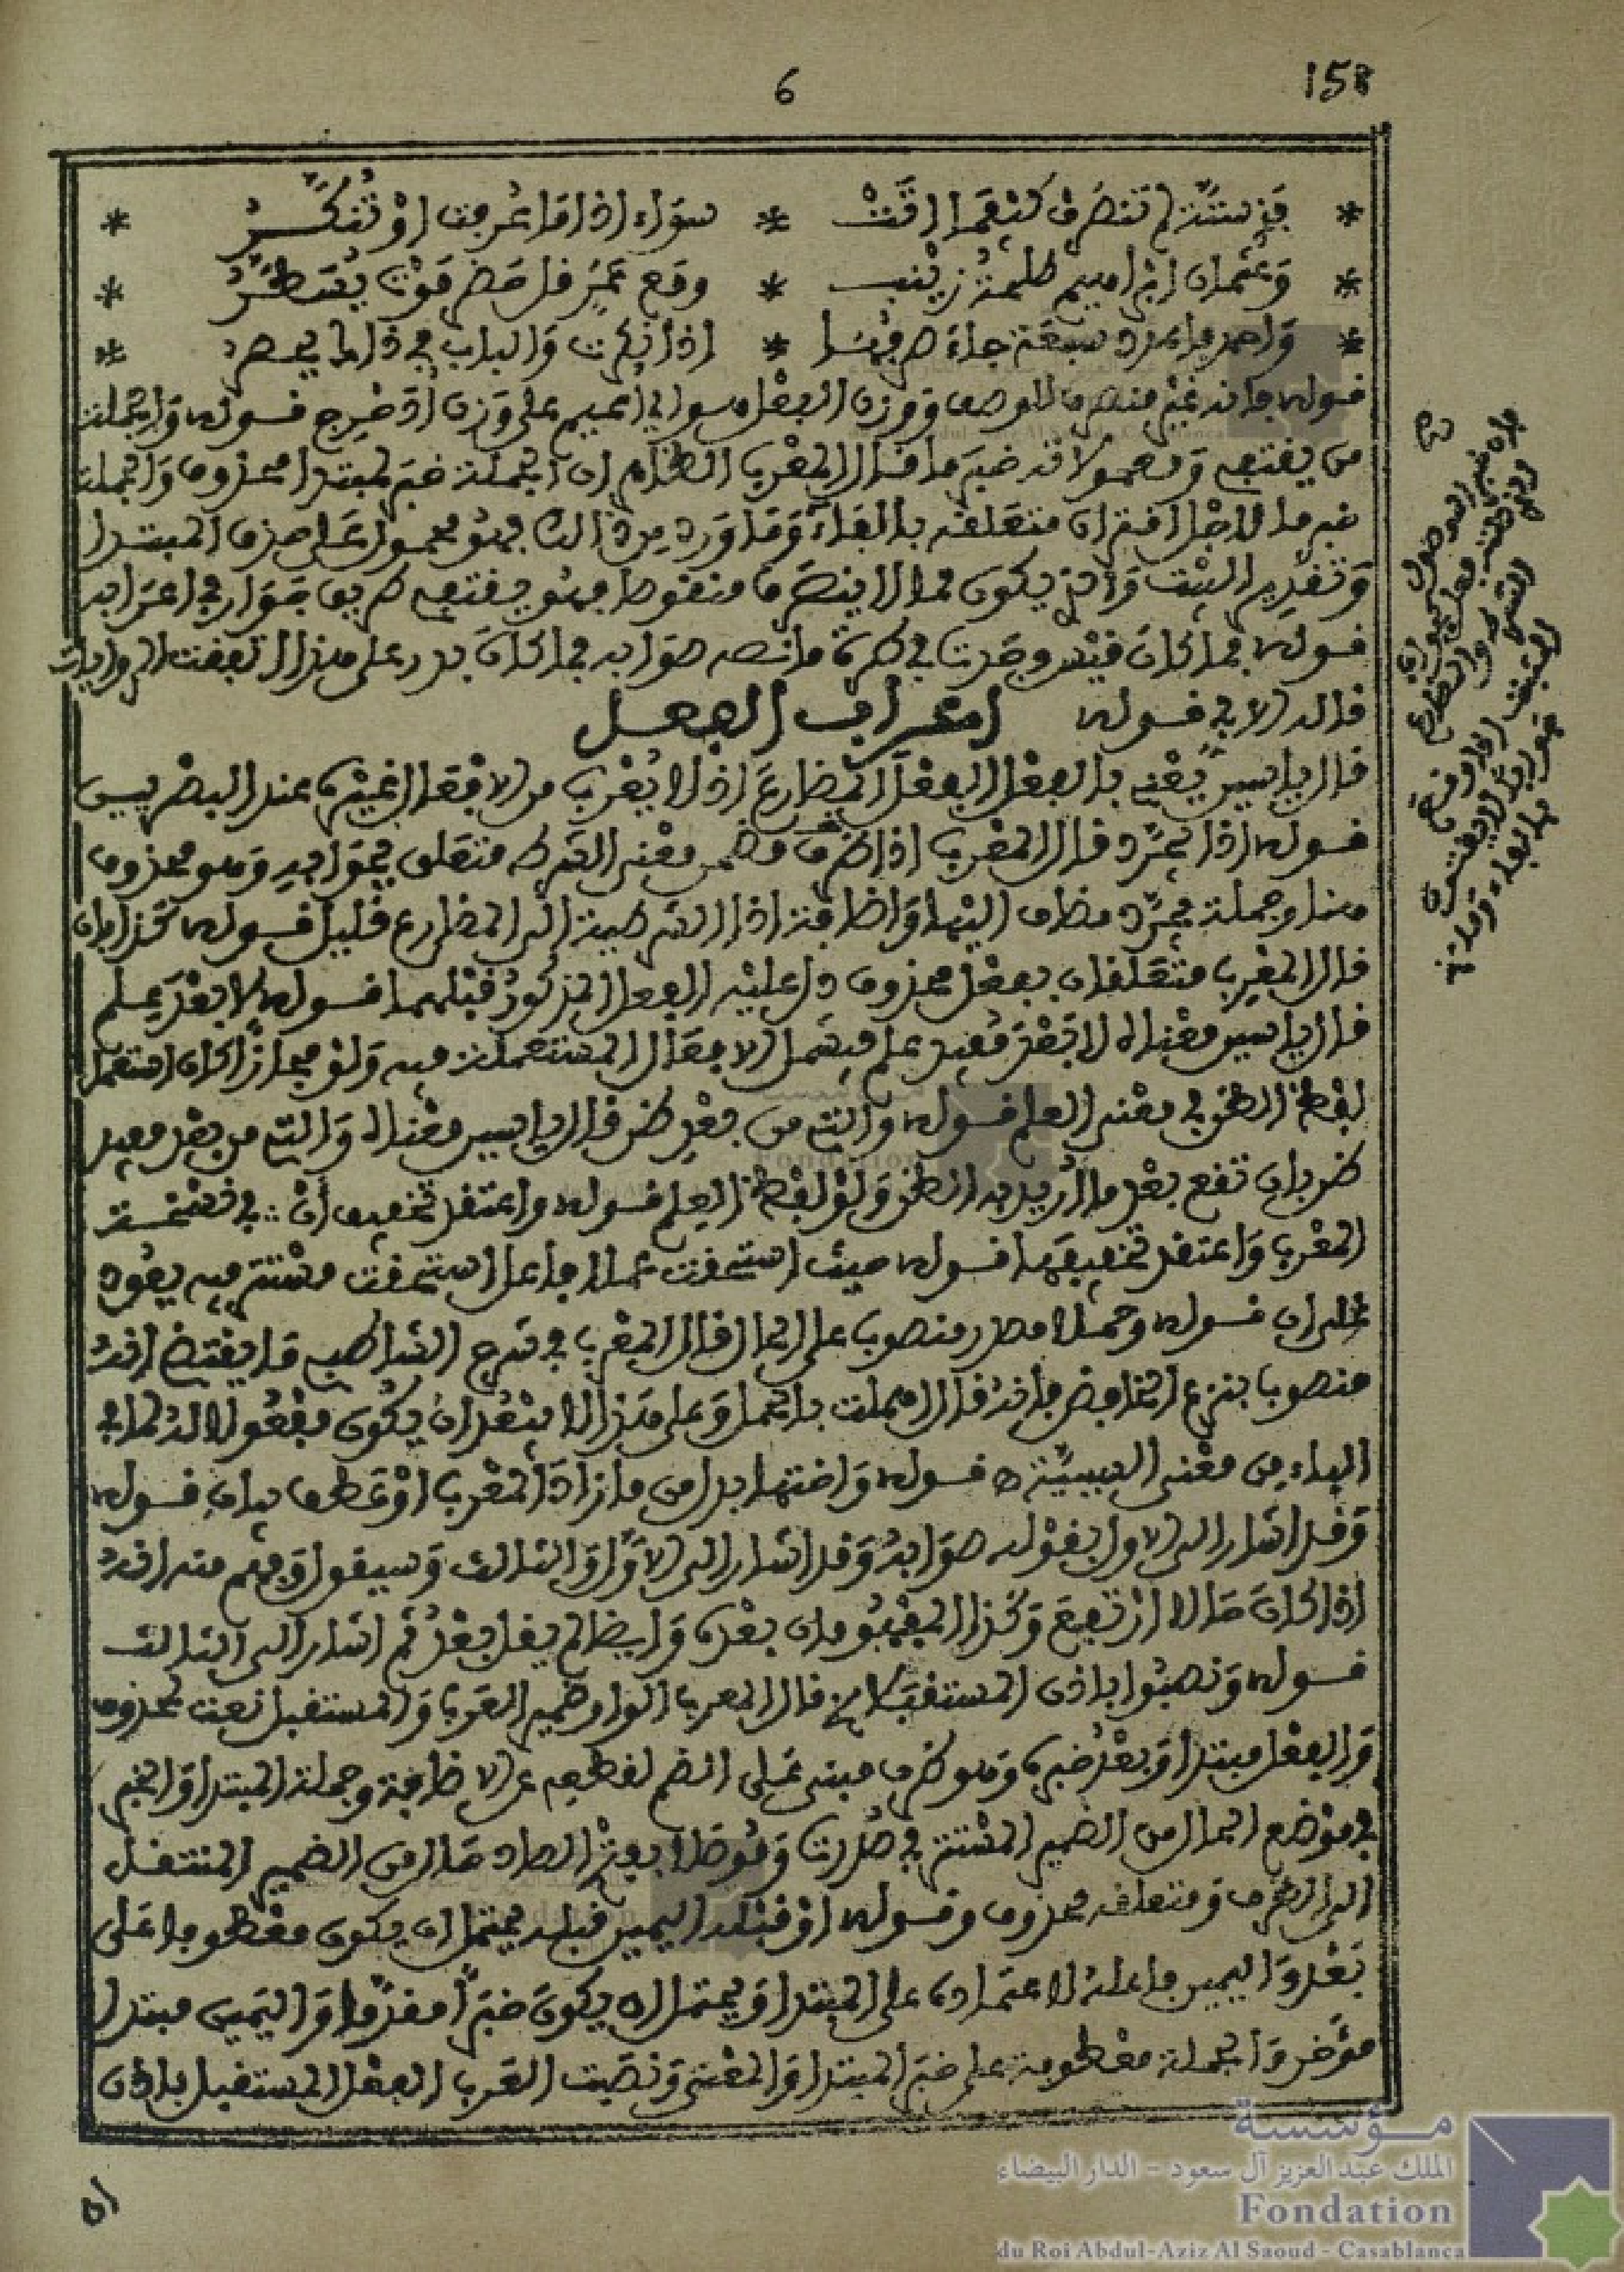 158
6
* فذ ستة لم تنصرف كيفما اتت * سواء اذا ما عرفت او تنكر *
* وعثمان ابراهيم طلحة زينب * ومع عمر قل حضرموت يسطر *
* واحمد فاعدد سبعة جاء صرفها * اذا نكرت والباب في ذاك يحصر *
قوله فانه غير منصرف للوصف ووزن الفعل سوا في اعيم على وزن ادخرج قوله والجملة
من يفتعم ومعمولاته خبر ما قال المعرب الظاهر ان الجملة خبر لمبتدا محذوف والجملة
خبر ما لاجل اقتران متعلقه بالفاء وما ورد من ذلك فهو محمول على حذف المبتدا
وتقدير البيت والذي يكون مما لا ينصرف منقوصا فهو يفتعم طريق جوار في اعرابه
قوله فما كان فيه وجدت في طرة ما نصه صوابه فما كان بدر على هذا اتفقت الروايات
قاله الا في قوله اعراب الفعل
قال ياسين يعني بالفعل الفعل المضارع اذ لا يعرب من الافعال غيره عند البصريين
قوله اذا يجرد قال المعرب اذا ظرف مضمن معنى الشرط متعلق بجوابه وهو محذوف
هنا وجملة يجرد مضاف اليها واضافة اذا الشرطية الى المضارع قليل قوله كذا بان
قال المعرب متعلقان بفعل محذوف دل عليه الفعل المذكور قبلهما قوله لا بعد علم
قال ياسين معناه لا بعد مفيد علم فيشمل الافعال المستعملة فيه ولو مجازا كان استعمل
لفظ الظن في معنى العلم قوله والتي من بعد ظن قال ياسين معناه والتي من بعد مفيد
ظن بان تقع بعد ما اريد به الظن ولو لفظ العلم قوله واعتقد تخفيف ان ∴ في نسخة
المعرب واعتقد تخفيفها قوله حيث استحقت عملا فاعل استحقت مستتر فيه يعود
على ان قوله وحملا مصدر منصوب على الحال قال المعرب في شرح الشاطبي ما يقتضي انه
منصوب بنزع الخافض فانه قال اهملت بالحمل وعلى هذا لا يبعد ان يكون مفعولا له لما في
الباء من معنى السببية ه قوله واختها بدل من ما زاد المعرب او عطف بيان قوله
وقد اشار الى الاول بقوله صوابه وقد اشار الى الاول والثالث وسيقول ويفهم منه انه
اذا كان حالا ارتفع وكذا المفهوم ان بعده وايضا لم يقل بعد ثم اشار الى الثالث
قوله ونصبوا باذن المستقبلا الخ قال المعرب الواو ضمير العرب والمستقبل نعت لمحذوف
والفعل مبتدا وبعد خبره وهو ظرف مبني على الضم لقطعه عن الاضافة وجملة المبتدا والخبر
في موضع الحال من الضمير المستتر في صدرت وموصلا بفتح الصاد حال من الضمير المنتقل
الى الظرف ومتعلقه محذوف وقوله او قبله اليمين قبله يحتمل ان يكون معطوفا على
بعد واليمين فاعله لاعتماده على المبتدا ويحتمل ان يكون خبرا مقدما واليمين مبتدا
مؤخر والجملة معطوفة على خبر المبتدا والمعنى ونصبت العرب الفعل المستقبل باذن
مؤسسة
الملك عبد العزيز آل سعود - الدار البيضاء
Fondation
du Roi Abdul-Aziz Al Saoud - Casablanca